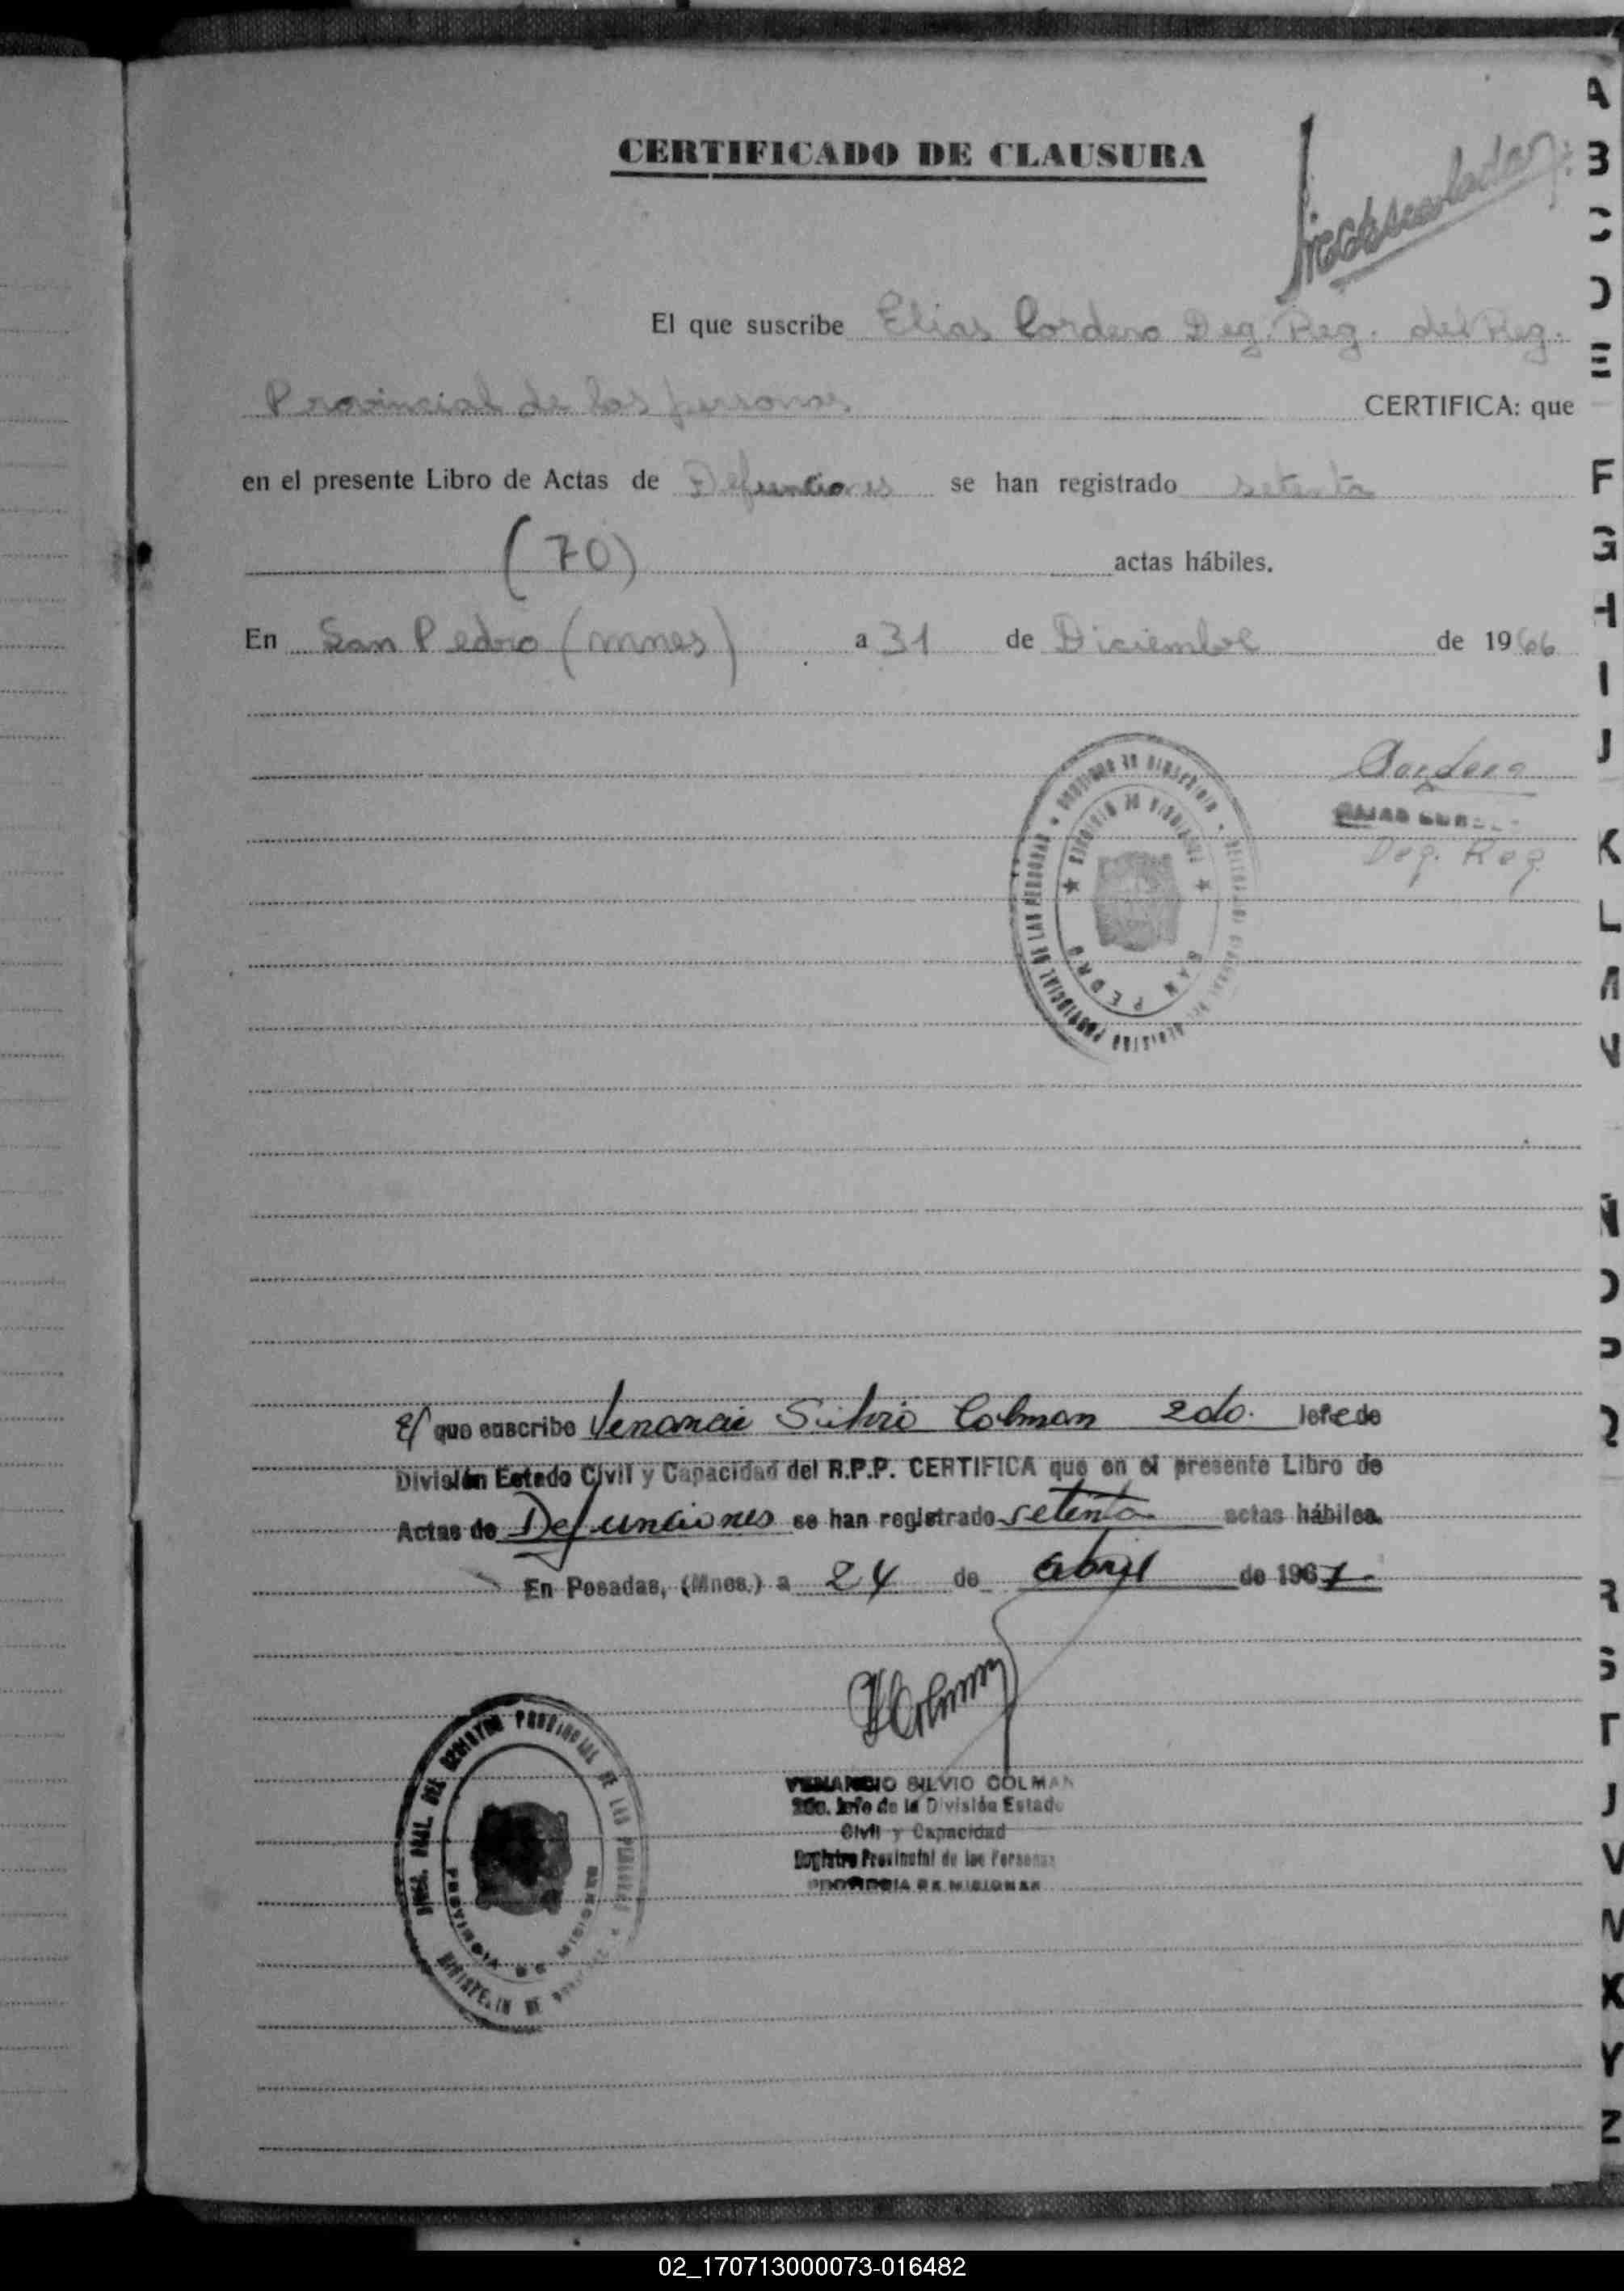 CERTIFICADO DE CLAUSURA
El que suscribe Elias Cordero Deg. Reg. del Reg.
Provincial de las personas CERTIFICA: que
en el presente Libro de Actas de Defunciones se han registrado setenta
(70) actas hábiles.
En San Pedro (mnes) a 31 de Diciembre de 1966
Cordero
Deg. Reg.
REGISTRO PROVINCIAL DE LAS PERSONAS
SAN PEDRO
El que suscribe Venancio Silvio Colman 2do. Jefe de
División Estado Civil y Capacidad del R.P.P. CERTIFICA que en el presente Libro de
Actas de Defunciones se han registrado setenta actas hábiles.
En Posadas, (Mnes.) a 24 de abril de 1967
VColman
VENANCIO SILVIO COLMAN
2do. Jefe de la División Estado
Civil y Capacidad
Registro Provincial de las Personas
PROVINCIA DE MISIONES
DIREC. GRAL. DEL REGISTRO PROVINCIAL DE LAS PERSONAS
PROVINCIA DE MISIONES
A
B
C
D
E
F
G
H
I
J
K
L
M
N
Ñ
O
P
Q
R
S
T
U
V
W
X
Y
Z
02_170713000073-016482